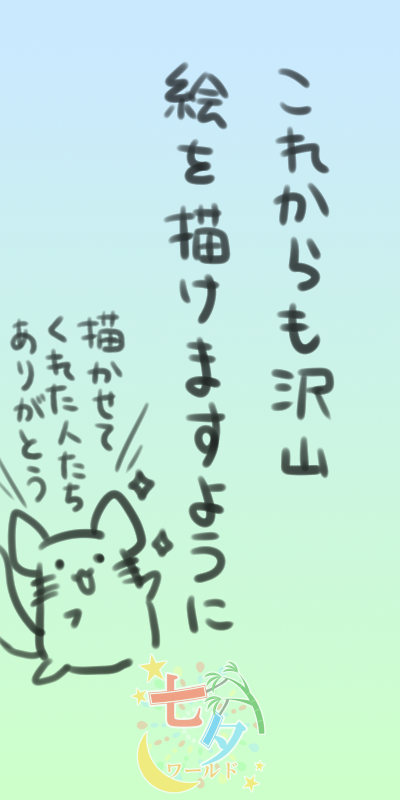 これからも沢山
絵を描けますように
描かせて
くれた人たち
ありがとう
七夕
ワールド